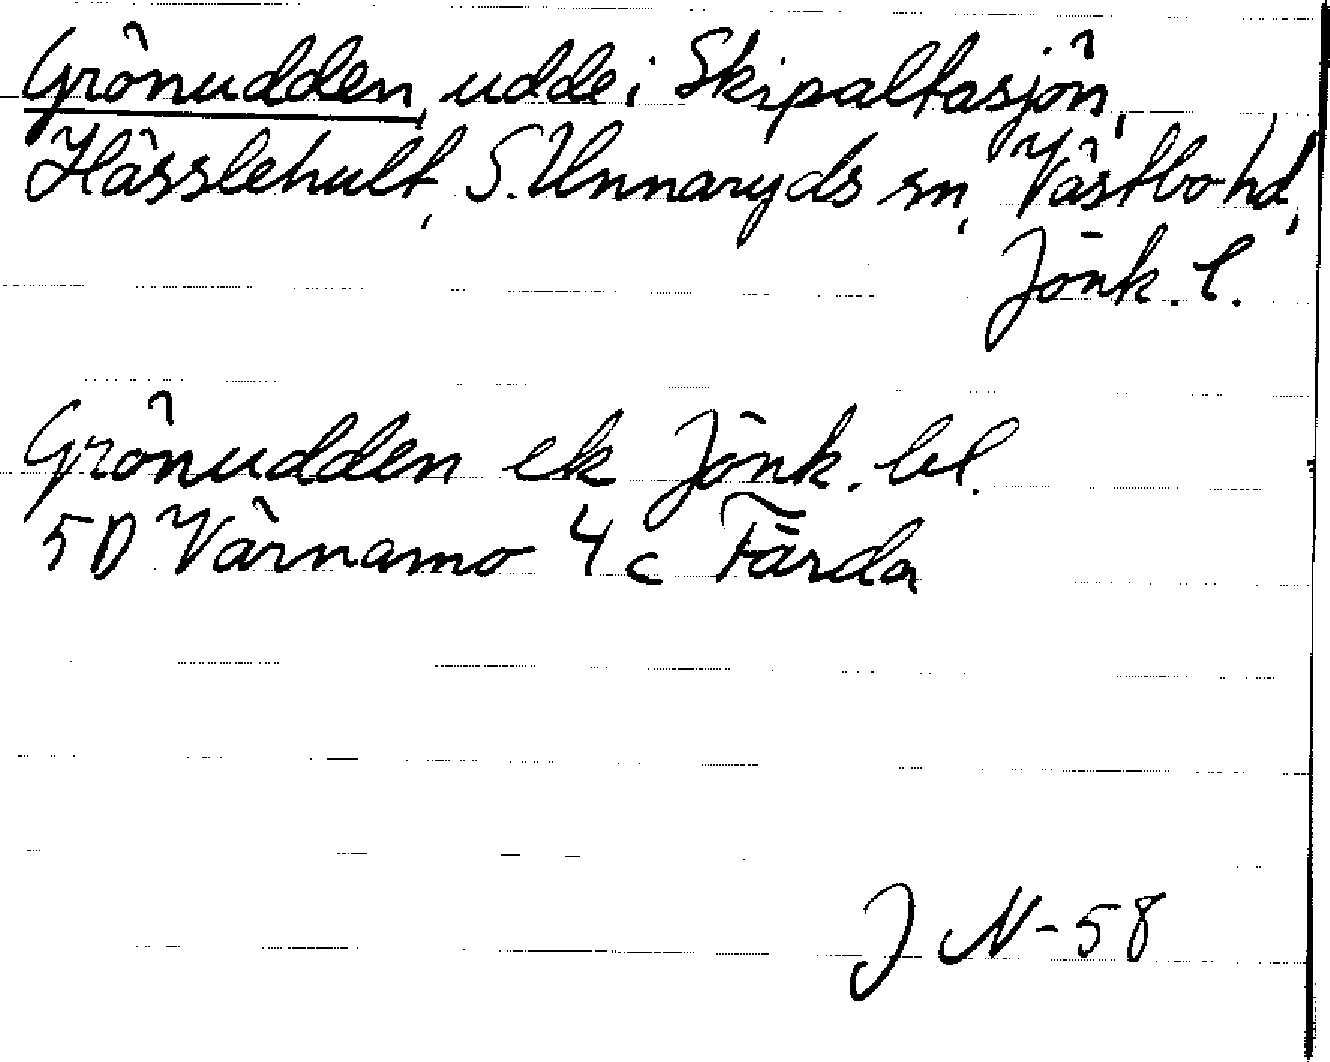 Grönudden, udde i Skipaltasjön,
Hässlehult, S. Unnaryds sn, Västbo hd,
Jönk. l.
Grönudden ek Jönk. bl.
5D Värnamo 4c Färda
J N-58